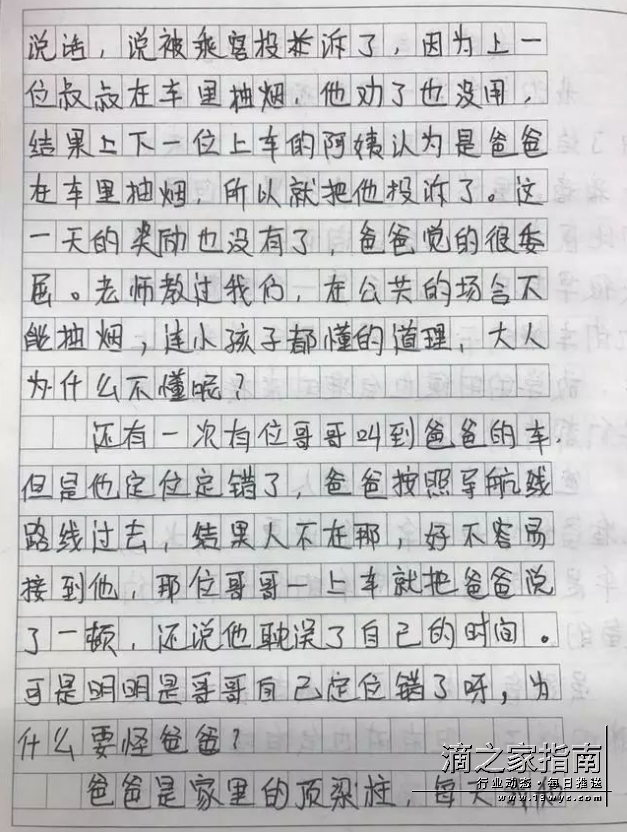 说话，说被乘客投诉了，因为上一
位叔叔在车里抽烟，他劝了也没用，
结果上下一位上车的阿姨认为是爸爸
在车里抽烟，所以就把他投诉了。这
一天的奖励也没有了，爸爸觉的很委
屈。老师教过我们，在公共的场合不
能抽烟，连小孩子都懂的道理，大人
为什么不懂呢？
还有一次有位哥哥叫到爸爸的车，
但是他定位定错了，爸爸按照导航线
路线过去，结果人不在那，好不容易
接到他，那位哥哥一上车就把爸爸说
了一顿，还说他耽误了自己的时间。
可是明明是哥哥自己定位错了呀，为
什么要怪爸爸？
爸爸是家里的顶梁柱，每天
滴之家指南
行业动态 每日推送